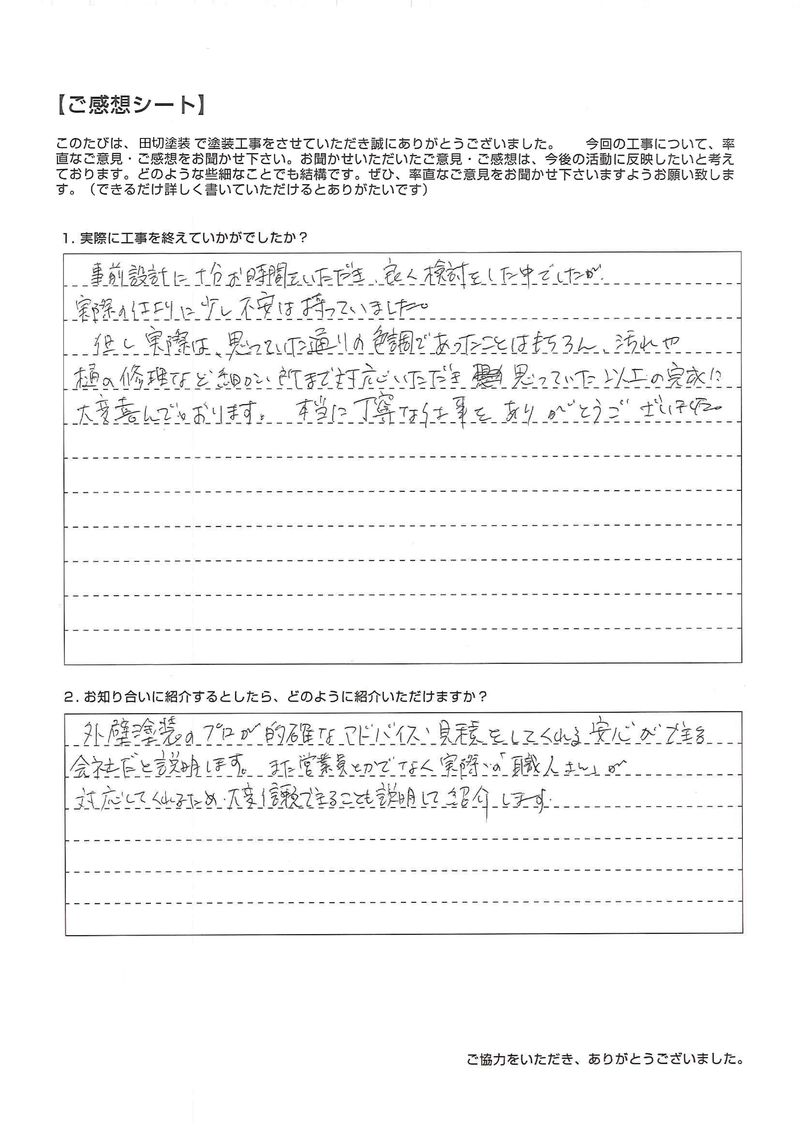 【ご感想シート】
このたびは、田切塗装で塗装工事をさせていただき誠にありがとうございました。　今回の工事について、率
直なご意見・ご感想をお聞かせ下さい。お聞かせいただいたご意見・ご感想は、今後の活動に反映したいと考え
ております。どのような些細なことでも結構です。ぜひ、率直なご意見をお聞かせ下さいますようお願い致しま
す。（できるだけ詳しく書いていただけるとありがたいです）
1. 実際に工事を終えていかがでしたか？
事前設計に十分お時間をいただき、良く検討をした中でしたが
実際の仕上りに少し不安は持っていました。
但し実際は、思っていた通りの色調であったことはもちろん、汚れや
樋の修理など細かい所まで対応いただき 思っていた以上の完成に
大変喜んでおります。本当に丁寧な仕事をありがとうございました。
2. お知り合いに紹介するとしたら、どのように紹介いただけますか？
外壁塗装のプロが的確なアドバイス、見積をしてくれる安心ができる
会社だと説明します。また営業員とかでなく実際の「職人さん」が
対応してくれるため、大変信頼できることも説明して紹介します。
ご協力をいただき、ありがとうございました。